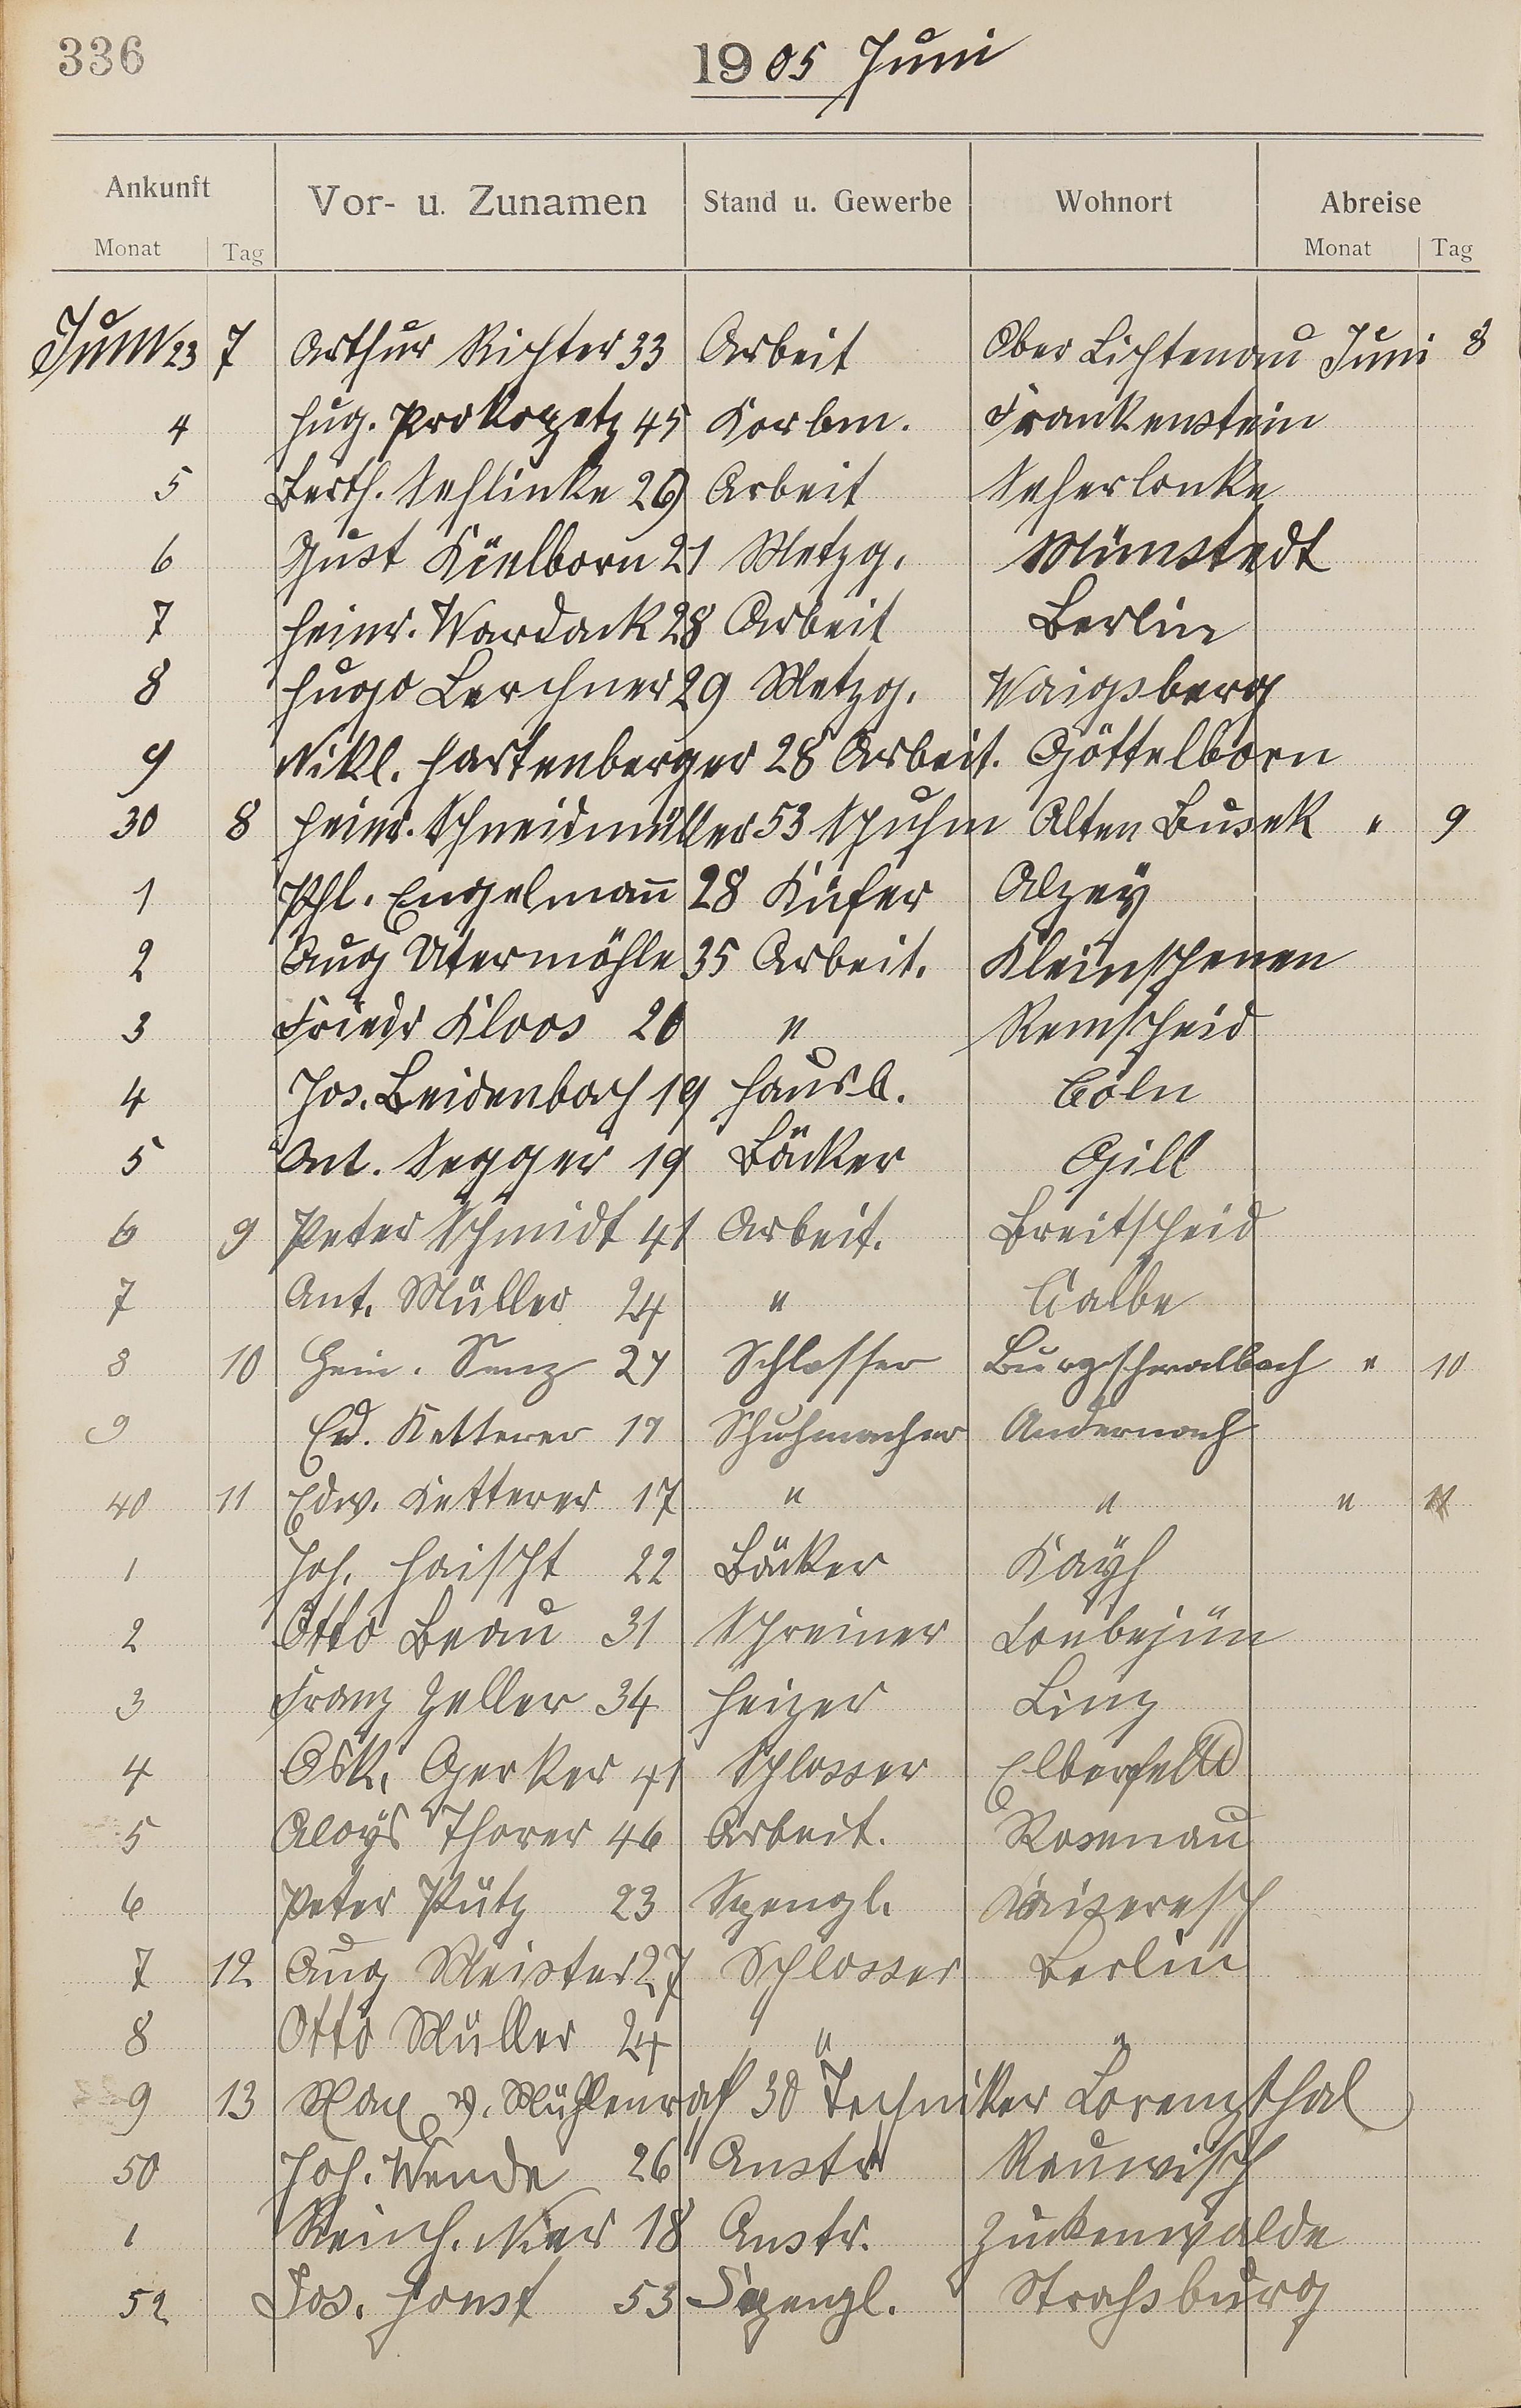 336
1905 Juni
Ankunft Vor- u. Zunamen Stand u. Gewerbe Wohnort Abreise
Monat Tag Monat Tag
Juni 23 7 Arthur Richter 33 Arbeit Ober Lichtenau Juni 8
4 Hug. Prokopetz 45 Korbm. Frankenstein
5 Berth. Sehlinke 29 Arbeit Seherlonke
6 Gust Kielborn 21 Metzg. Minstedt
7 Heinr. Wardack 28 Arbeit Berlin
8 Hugo Lerchner 29 Metzg. Waigsberg
9 Nikl. Hartenberger 28 Arbeit. Göttelborn
30 8 Heinr. Schneidmüller 53 Schuhm Alten Busek " 9
1 Phl. Engelmann 28 Küfer Alzey
2 Aug Utermöhle 35 Arbeit. Kleinschenen
3 Friedr Kloos 20 " Remscheid
4 Jos. Beidenbach 19 Hausb. Cöln
5 Ant. Segger 19 Bäcker Gill
6 9 Peter Schmidt 41 Arbeit. Breitscheid
7 Ant. Müller 24 " Calbe
8 10 Hein. Senz 27 Schlosser Burgschwalbach " 10
9 Ed. Ketterer 17 Schuhmacher Andernach
40 11 Edw. Ketterer 17 " " " 11
1 Joh. Haischt 22 Bäcker Kayh
2 Otto Beau 31 Schreiner Loebejün
3 Franz Zeller 34 Heizer Linz
4 Osk. Gerker 41 Schlosser Elberfeld
5 Aloys Thorer 46 Arbeit. Rosenau
6 Peter Pütz 23 Spengl. Kaisersesch
7 12 Aug Meister 27 Schlosser Berlin
8 Otto Müller 24 " "
9 13 Max v. Mühlenrath 30 Techniker Lorenzthal
50 Joh. Wende 26 Anstr Rauwisch
1 Reinh. Nier 18 Anstr. Zuckenwalde
52 Jos. Honst 53 Spengl. Strassburg